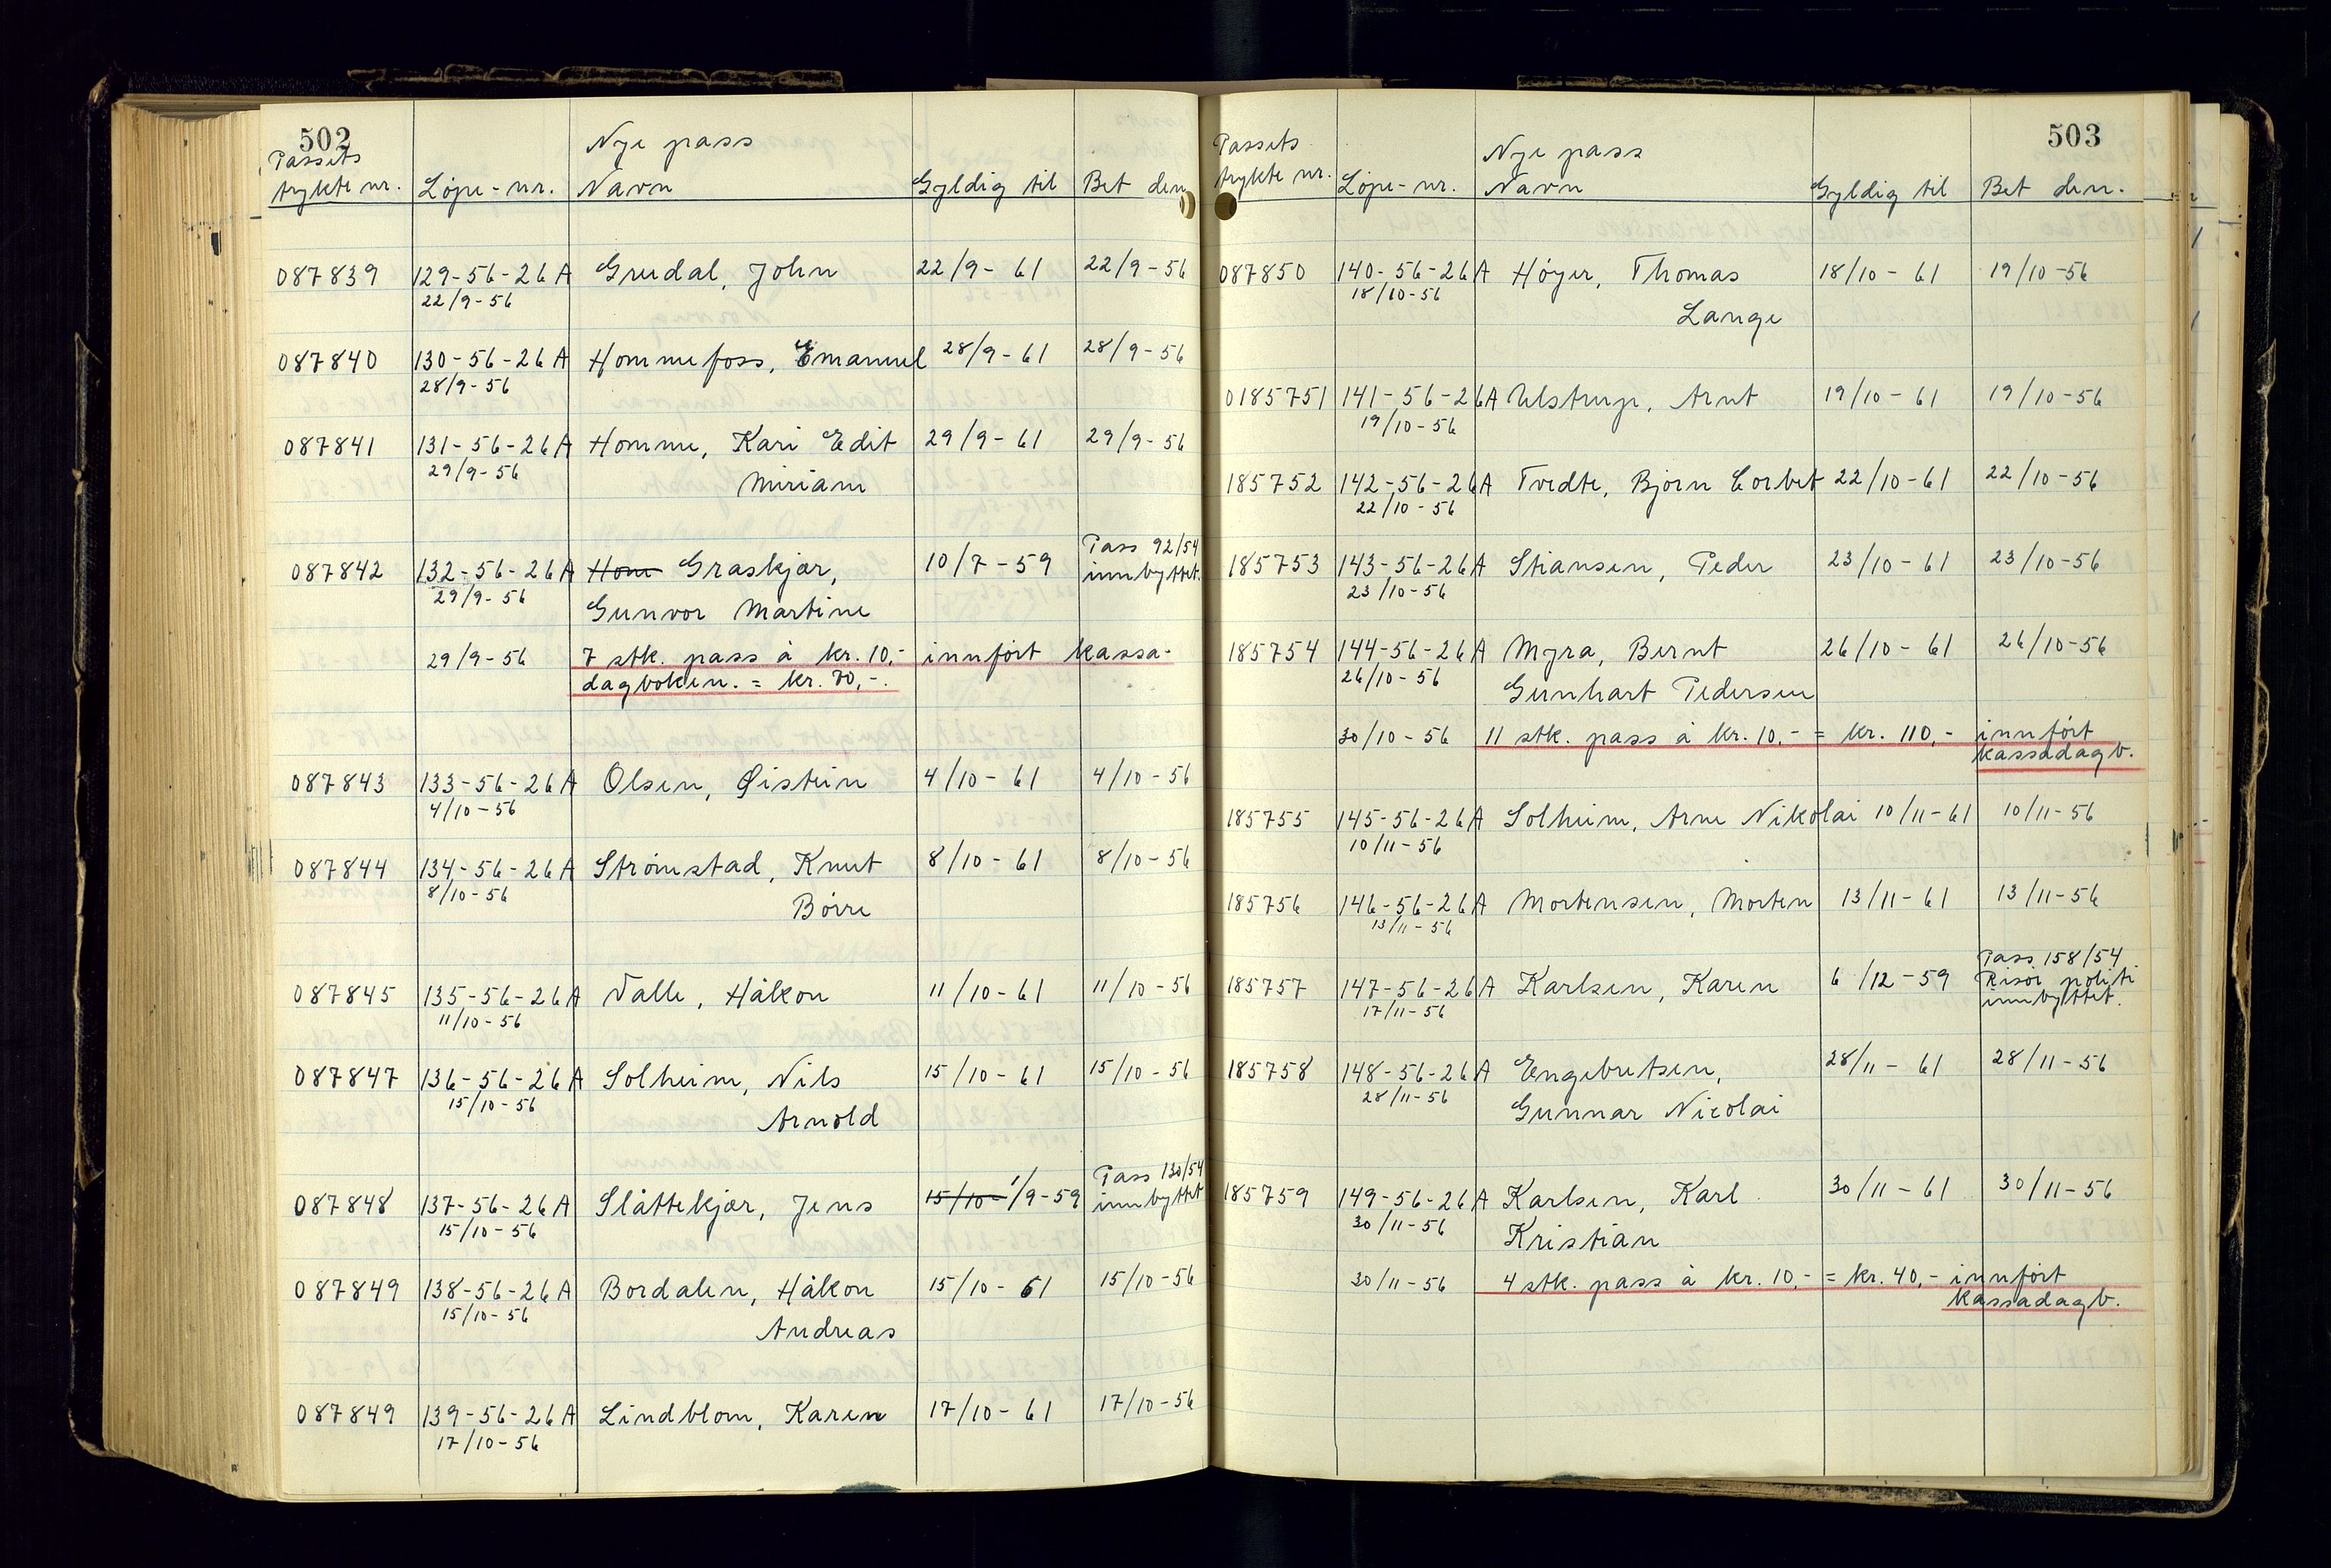 502
Nye pass
Passets
trykte nr. Løpe-nr. Navn Gyldig til Bet den
087839 129-56-26A Grudal, John 22/9-61 22/9-56
22/9-56
087840 130-56-26A Hommefoss, Emanuel 28/9-61 28/9-56
28/9-56
087841 131-56-26A Homme, Kari Edit 29/9-61 29/9-56
29/9-56 Miriam
Pass 92/54
087842 132-56-26A Hom Graskjær, 10/7-59 innbyttet.
29/9-56 Gunvor Martine
29/9-56 7 stk. pass à kr. 10,- innført kassa-
dagboken. = kr. 70,-.
087843 133-56-26A Olsen, Øistein 4/10-61 4/10-56
4/10-56
087844 134-56-26A Strømstad, Knut 8/10-61 8/10-56
8/10-56 Børre
087845 135-56-26A Valle, Håkon 11/10-61 11/10-56
11/10-56
087847 136-56-26A Solheim, Nils 15/10-61 15/10-56
15/10-56 Arnold
Pass 130/54
087848 137-56-26A Slåttekjær, Jens 15/10- 1/9-59 innbyttet
15/10-56
087849 138-56-26A Bordalen, Håkon 15/10-61 15/10-56
15/10-56 Andreas
087849 139-56-26A Lindblom, Karen 17/10-61 17/10-56
17/10-56
503
Passets Nye pass
trykte nr. Løpe-nr. Navn Gyldig til Bet den.
087850 140-56-26A Høyer, Thomas 18/10-61 19/10-56
18/10-56 Lange
0185751 141-56-26A Ulstrup, Arnt 19/10-61 19/10-56
19/10-56
185752 142-56-26A Tvedte, Bjørn Corbet 22/10-61 22/10-56
22/10-56
185753 143-56-26A Stiansen, Peder 23/10-61 23/10-56
23/10-56
185754 144-56-26A Myra, Bernt 26/10-61 26/10-56
26/10-56 Gunhart Pedersen
30/10-56 11 stk. pass à kr. 10.- = kr. 110,- innført
kassadagb.
185755 145-56-26A Solheim, Arne Nikolai 10/11-61 10/11-56
10/11-56
185756 146-56-26A Mortensen, Morten 13/11-61 13/11-56
13/11-56
Pass 158/54
185757 147-56-26A Karlsen, Karen 6/12-59 Risør politi
17/11-56 innbyttet.
185758 148-56-26A Engebretsen, 28/11-61 28/11-56
28/11-56 Gunnar Nicolai
185759 149-56-26A Karlsen, Karl 30/11-61 30/11-56
30/11-56 Kristian
30/11-56 4 stk. pass à kr. 10,- = kr. 40,- innført
kassadagb.